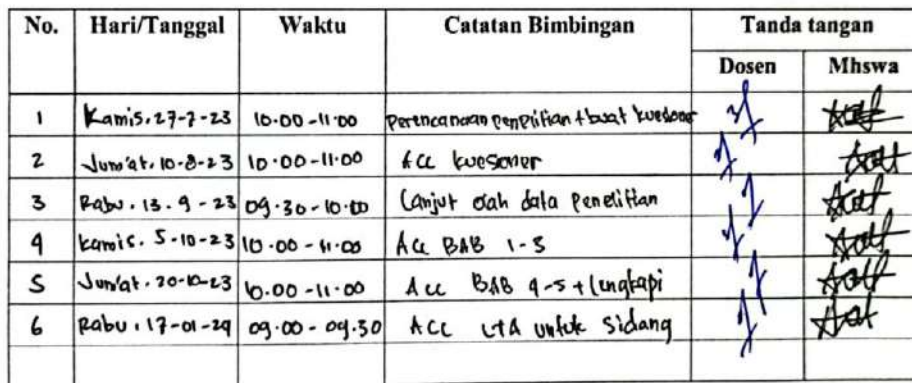 No. Hari/Tanggal Waktu Catatan Bimbingan Tanda tangan
Dosen Mhswa
1 Kamis, 27-7-23 10.00-11.00 Perencanaan penelitian + buat kuesoner
2 Jum'at, 10-8-23 10.00-11.00 Acc kuesoner
3 Rabu, 13.9-23 09.30-10.00 Lanjut olah data penelitian
4 Kamis, 5-10-23 10.00-11.00 Acc BAB 1-3
5 Jum'at, 20-10-23 10.00-11.00 Acc BAB 4-5 + lengkapi
6 Rabu, 17-01-24 09.00-09.30 ACC LTA untuk sidang